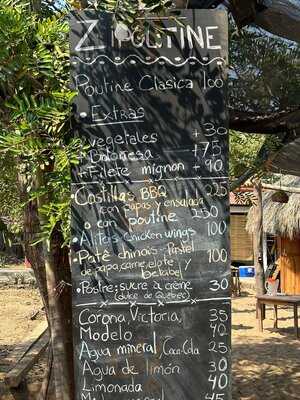 ZIPOUTINE
Poutine Clasica 100
• Extras
vegetales +30
Boloñesa +75
+ Filete mignon +90
• Costillas BBQ 225
con papas y ensalada
o con poutine 250
• Alitas chicken wings 100
• Paté chinois: Pastel
de papa, carne, elote y 100
betabel
• Postre: sucre à crème 30
(dulce de Québec)
Corona Victoria, 35
Modelo 40
Agua mineral Coca-Cola 25
Agua de limón 30
Limonada 40
45